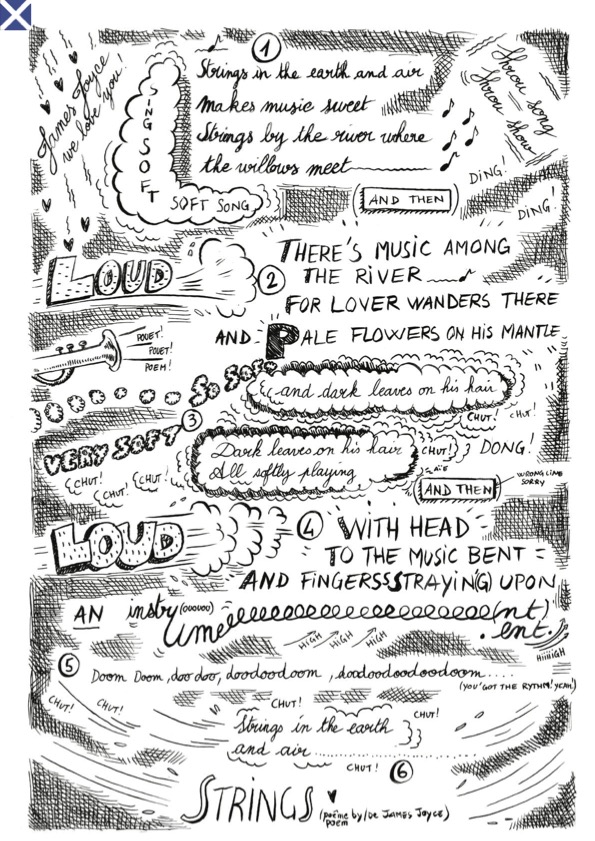 James Joyce
we love you!
SING SOFT
SOFT SONG
1
Strings in the earth and air
Makes music sweet
Strings by the river where
the willows meet
AND THEN
Shrou song
Shrou show
DING!
DING!
LOUD
2
THERE'S MUSIC AMONG
THE RIVER
FOR LOVER WANDERS THERE
AND PALE FLOWERS ON HIS MANTLE
POUET!
POUET!
POEM!
SO SOFT
and dark leaves on his hair
CHUT! CHUT!
VERY SOFT
CHUT!
CHUT!
CHUT!
3
Dark leaves on his hair
All softly playing
CHUT!
DONG!
AND THEN
WRONG LINE
SORRY
LOUD
4
WITH HEAD
TO THE MUSIC BENT
AND FINGERSSSTRAYIN(G) UPON
AN instry(ooooo)
Umeeeeeeeeeeeeeeeeeeeee(nt)
.ent.
HIGH HIGH HIGH
HIIIIGH
5
Doom Doom, doo doo, doodoodoom, doodoodoodoodoom....
(YOU'GOT THE RYTHM! YEAH!)
CHUT! CHUT!
CHUT!
CHUT!
Strings in the earth
and air
CHUT!
6
STRINGS
(poëme by/DE JAMES JOYCE)
poem